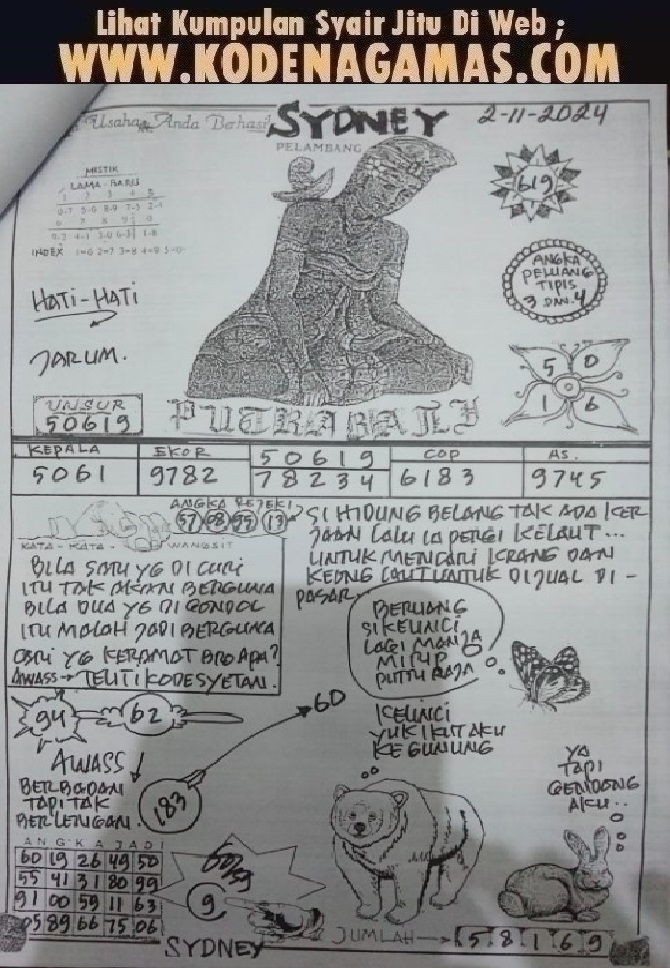 Lihat Kumpulan Syair Jitu Di Web ;
WWW.KODENAGAMAS.COM
Usaha Anda Berhasil
SYDNEY
2-11-2024
PELAMBANG
MISTIK
LAMA - BARU
INDEX 1=6 2=7 3=8 4=9 5=0
619
ANGKA
PELUANG
TIPIS
3 DAN 4
HATI-HATI
JARUM.
5 0
1 6
UNSUR
50619
PUTRA BALI
KEPALA EKOR 50619 COP AS.
5061 9782 78234 6183 9745
ANGKA REJEKI
57 08 99 13
KATA - KATA - WANGSIT
BILA SATU YG DI CURI
ITU TAK AKAN BERGUNA
BILA DUA YG DI GONDOL
ITU MALAH JADI BERGUNA
YG KERAMAT BRO APA?
AWASS → TELITI KODE SYETAN.
SI HIDUNG BELANG TAK ADA KER
JAAN LALU IA PERGI KELAUT...
UNTUK MENCARI KRANG DAN
KEONG LAUT UNTUK DIJUAL DI -
PASAR.
BERUANG
SI KELINCI
LAGI MANJA
MIRIP
PUTRI RAJA
94 62
60
KELINCI
YUK IKUT AKU
KE GUNUNG
AWASS
BERBADAN
TAPI TAK
BERLENGAN.
183
YA
TAPI
GENDONG
AKU..
ANGKA JADI
60 19 26 49 50
55 41 31 80 99
91 00 59 11 63
05 89 66 75 06
9
SYDNEY
JUMLAH → 58169